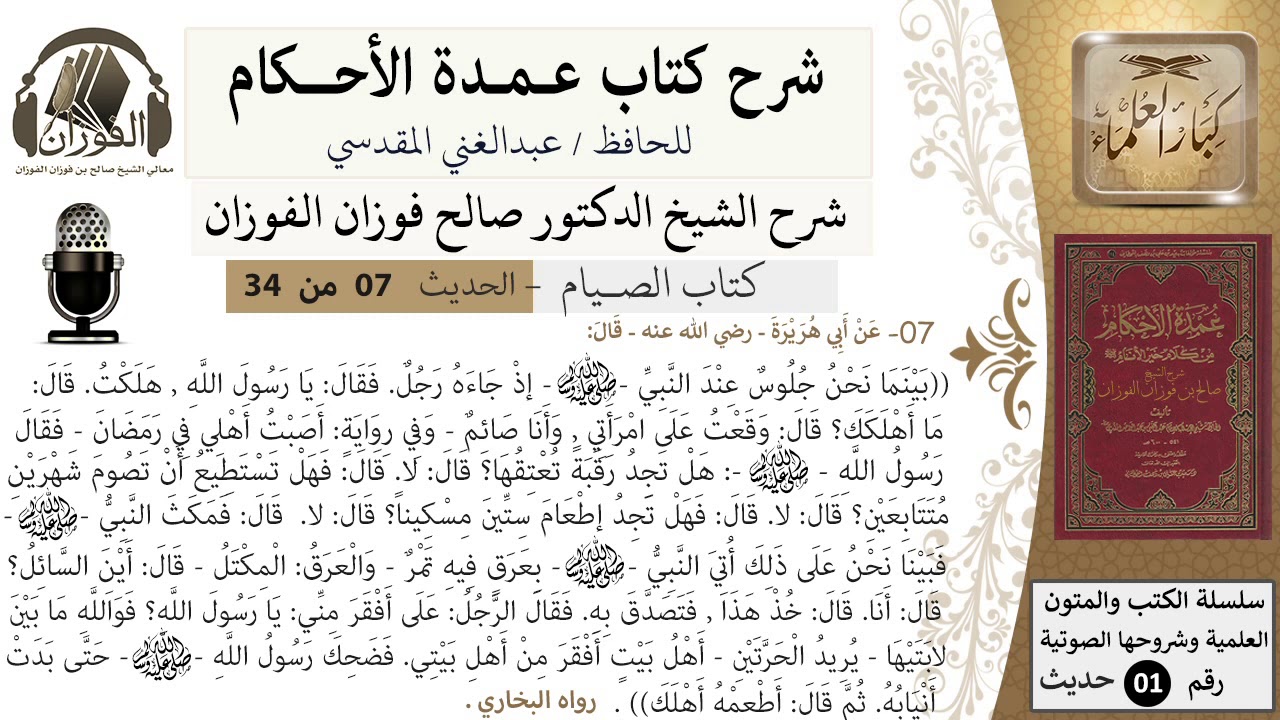 شرح كتاب عـمـدة الأحـــكام
للحافظ / عبدالغني المقدسي
شرح الشيخ الدكتور صالح فوزان الفوزان
كتاب الصـيام – الحديث 07 من 34
الفوزان
معالي الشيخ صالح بن فوزان الفوزان
كبار العلماء
07- عَنْ أَبِي هُرَيْرَةَ - رضي الله عنه - قَالَ:
((بَيْنَمَا نَحْنُ جُلُوسٌ عِنْدَ النَّبِيِّ -ﷺ- إذْ جاءَهُ رَجُلٌ. فَقَالَ: يَا رَسُولَ اللَّه , هَلَكْتُ. قالَ:
مَا أَهْلَكَكَ؟ قالَ: وَقَعْتُ عَلَى امْرَأَتي , وَأَنَا صائمٌ - وفي روايَةٍ: أَصَبْتُ أَهْلي في رَمَضَانَ - فَقالَ
رَسُولُ اللَّه - ﷺ -: هَلْ تَجدُ رَقَبَةً تُعْتقُهَا؟ قالَ: لا. قالَ: فَهَلْ تَسْتَطيع أَنْ تَصُومَ شَهْرَيْن
مُتَتَابِعَيْن؟ قالَ: لا. قالَ: فَهَلْ تَجدُ إطْعَامَ ستِّينَ مسْكيناً؟ قالَ: لا. قالَ: فَمَكَثَ النَّبيُّ -ﷺ-
فَبَيْنَا نَحْنُ عَلَى ذَلكَ أُتيَ النَّبيُّ -ﷺ- بِعَرَقٍ فيه تَمْرٌ - والْعَرَقُ: الْمكْتَلُ - قالَ: أَيْنَ السَّائلُ؟
قالَ: أَنَا. قالَ: خُذْ هَذَا , فَتَصَدَّقَ به. فَقالَ الرَّجُلُ: عَلَى أَفْقَرَ منِّي: يَا رَسُولَ اللَّه؟ فَوَاللَّه مَا بَيْنَ
لابَتَيْهَا - يريدُ الْحَرَّتَيْنِ - أَهْلُ بَيْتٍ أَفْقَرَ مِنْ أَهْلِ بَيْتِي. فَضَحِكَ رَسُولُ اللَّهِ -ﷺ- حَتَّى بَدَتْ
أَنْيَابُهُ. ثُمَّ قالَ: أَطْعمْهُ أَهْلَكَ)) . رواه البخاري .
عُمْدَةُ الأَحْكَامِ
مِنْ كَلَامِ خَيْرِ الأَنَامِ ﷺ
شرح الشيخ
صالح بن فوزان الفوزان
تأليف
سلسلة الكتب والمتون
العلمية وشروحها الصوتية
رقم 01 حديث